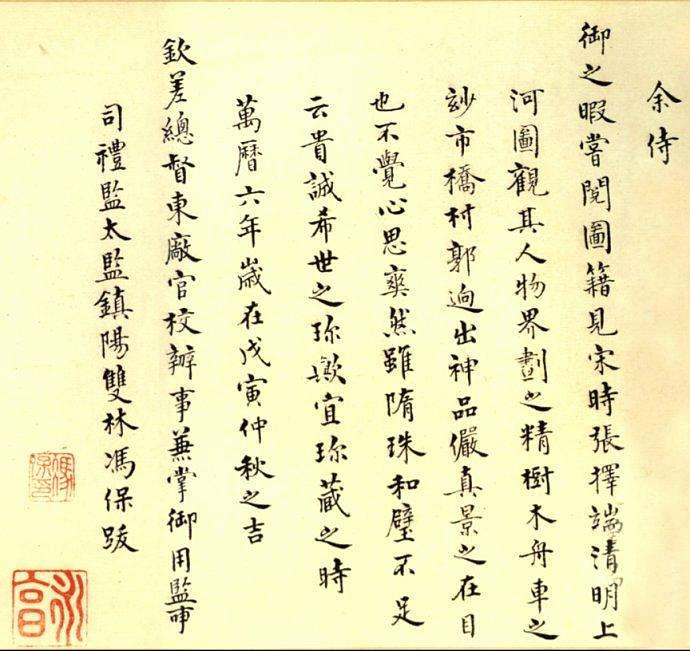 余侍
御之暇嘗閱圖籍見宋時張擇端清明上
河圖觀其人物界劃之精樹木舟車之
玅市橋村郭逈出神品儼真景之在目
也不覺心思爽然雖隋珠和璧不足
云貴誠希世之珎歟宜珎藏之時
萬曆六年歲在戊寅仲秋之吉
欽差總督東廠官校辦事兼掌御用監事
司禮監太監鎮陽雙林馮保跋